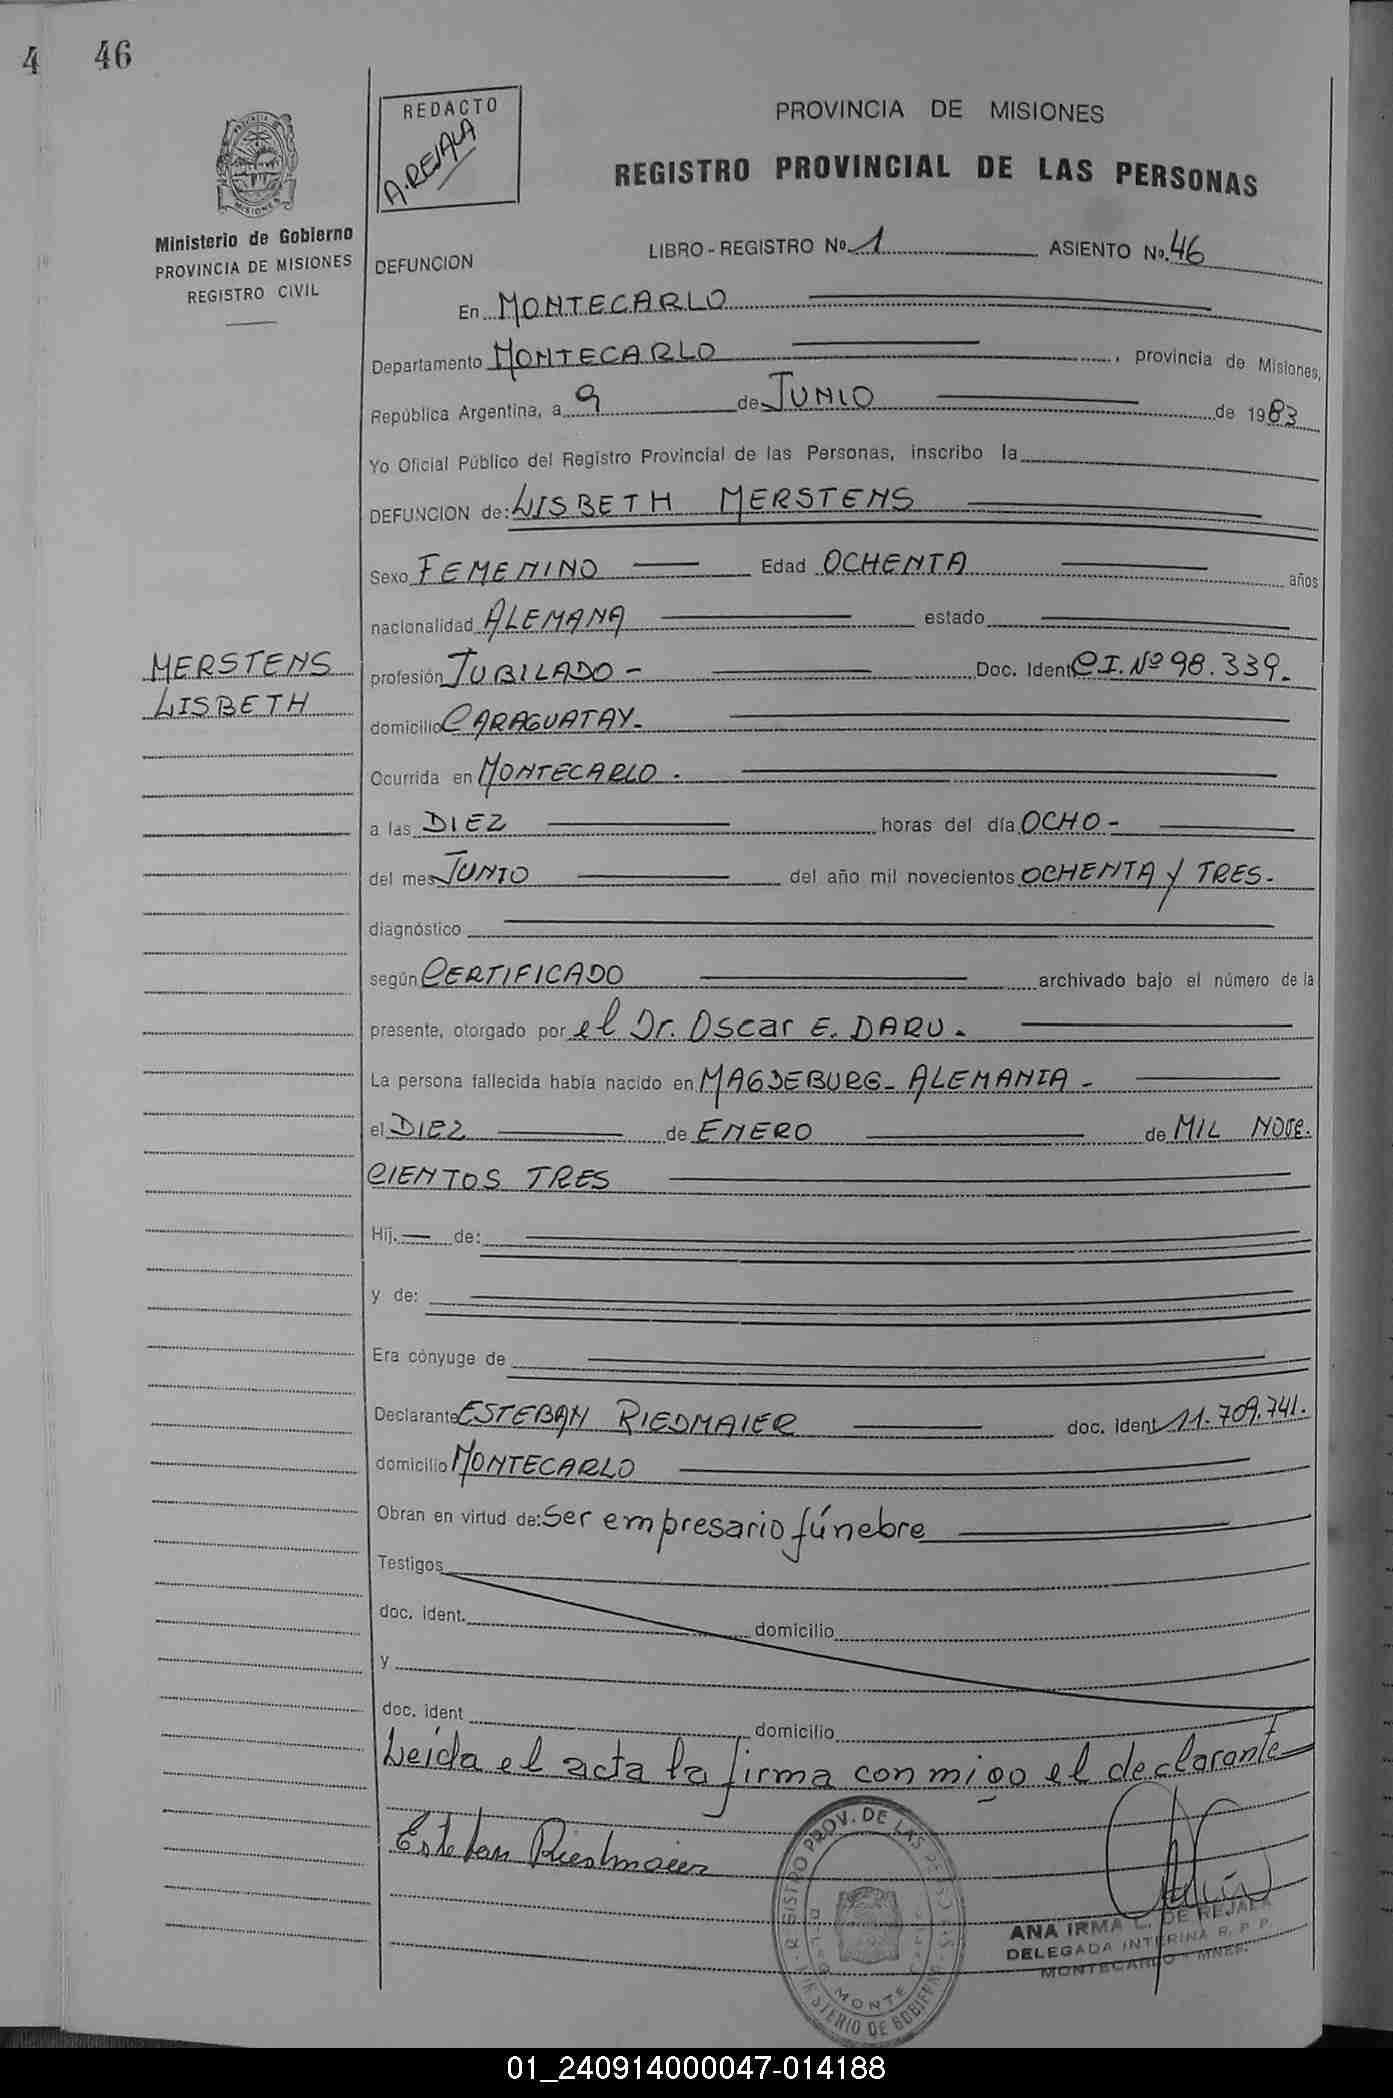 4 46
REDACTO
A. REJALA
PROVINCIA DE MISIONES
REGISTRO PROVINCIAL DE LAS PERSONAS
MISIONES
Ministerio de Gobierno
PROVINCIA DE MISIONES
REGISTRO CIVIL
DEFUNCION LIBRO - REGISTRO No. 1 ASIENTO No. 46
En MONTECARLO
Departamento MONTECARLO, provincia de Misiones,
República Argentina, a 9 de JUNIO de 1983
Yo Oficial Público del Registro Provincial de las Personas, inscribo la
DEFUNCION de: LISBETH MERSTENS
Sexo FEMENINO Edad OCHENTA años
nacionalidad ALEMANA estado
MERSTENS
LISBETH
profesión JUBILADO - Doc. Ident CI. Nº 98.339.
domicilio CARAGUATAY.
Ocurrida en MONTECARLO.
a las DIEZ horas del día OCHO -
del mes JUNIO del año mil novecientos OCHENTA Y TRES.
diagnóstico
según CERTIFICADO archivado bajo el número de la
presente, otorgado por el Dr. Oscar E. DARU.
La persona fallecida había nacido en MAGDEBURG - ALEMANIA -
el DIEZ de ENERO de MIL NOVE.
CIENTOS TRES
Hij. de:
y de:
Era cónyuge de
Declarante ESTEBAN RIEDMAIER doc. ident 11.709.741.
domicilio MONTECARLO
Obran en virtud de: Ser empresario fúnebre
Testigos
doc. ident. domicilio
y
doc. ident domicilio
Leída el acta la firma conmigo el declarante
Esteban Riedmaier
ANA IRMA L. DE REJALA
DELEGADA INTERINA R. P. P.
MONTECARLO - MNES.
01_240914000047-014188